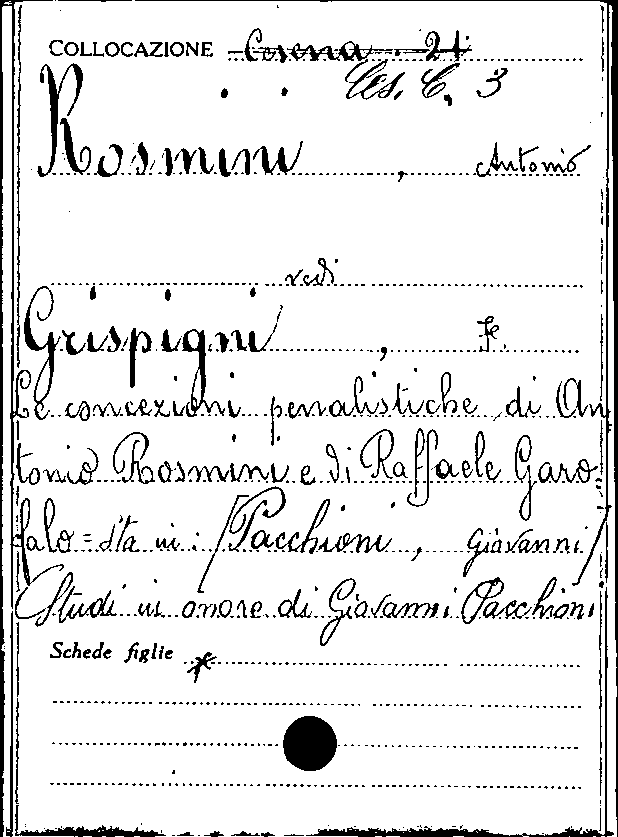 COLLOCAZIONE Cesena . 21
Ces. C. 3
Rosmini , Antonio
vedi
Grispigni , F.
Le concezioni penalistiche di An
tonio Rosmini e di Raffaele Garo
falo = Sta in : [Pacchioni, Giovanni]
Studi in onore di Giovanni Pacchioni
Schede figlie